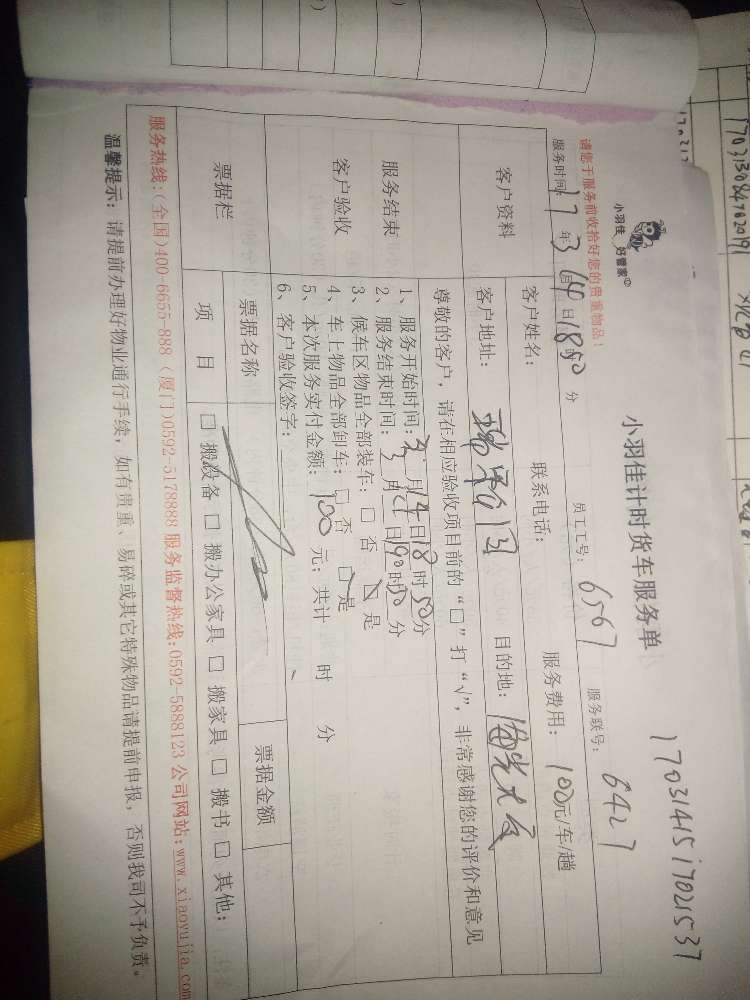 170314151702153​7
小羽佳 好管家
小羽佳计时货车服务单
请您于服务前收拾好您的贵重物品！
服务时间：17年3月14日18时50分 员工工号：6567 服务联号：6427
客户资料
客户姓名： 联系电话： 服务费用：100元/车/趟
客户地址： 目的地：
尊敬的客户，请在相应验收项目前的“□”打“√”，非常感谢您的评价和意见
服务结束
客户验收
1、服务开始时间：3月14日18时50分
2、服务结束时间：3月 日19时50分
3、候车区物品全部装车：□否 ☑是
4、车上物品全部卸车：□否 ☑是
5、本次服务实付金额：100元；共计 时 分
6、客户验收签字：
票据栏
票据名称 票据金额
项 目 □搬设备 □搬办公家具 □搬家具 □搬书 □其他：
服务热线：(全国)400-6655-888 (厦门)0592-5178888 服务监督热线：0592-5888123 公司网站：www.xiaoyujia.com
温馨提示：请提前办理好物业通行手续，如有贵重、易碎或其它特殊物品请提前申报，否则我司不予负责。